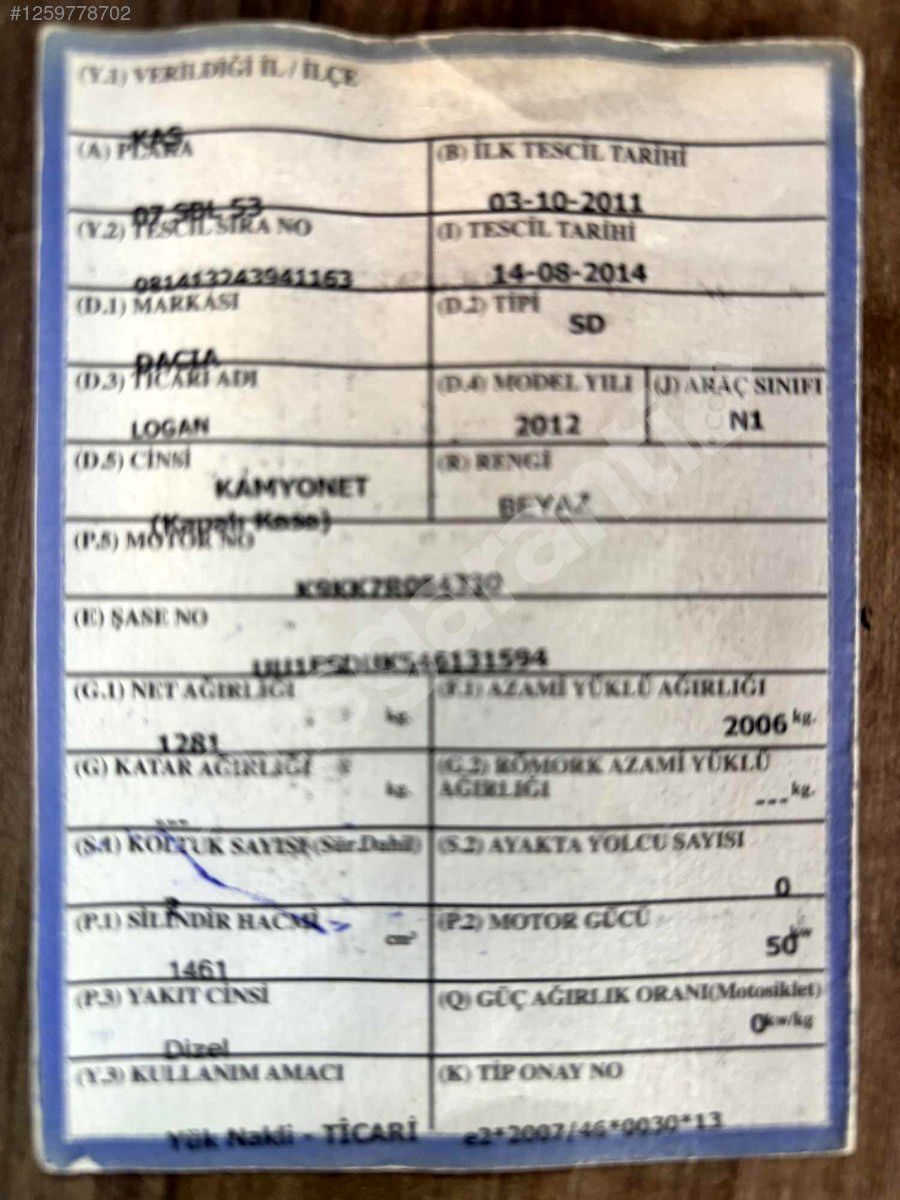 #1259778702
(Y.1) VERİLDİĞİ İL / İLÇE
KAŞ
(A) PLAKA
(B) İLK TESCİL TARİHİ
07 SBL 53
03-10-2011
(Y.2) TESCİL SIRA NO
(I) TESCİL TARİHİ
081413243941163
14-08-2014
(D.1) MARKASI
(D.2) TİPİ
SD
DACIA
(D.3) TİCARİ ADI
(D.4) MODEL YILI
(J) ARAÇ SINIFI
LOGAN
2012
N1
(D.5) CİNSİ
(R) RENGİ
KAMYONET
BEYAZ
(Kapalı Kasa)
(P.5) MOTOR NO
(E) ŞASE NO
(G.1) NET AĞIRLIĞI
(F.1) AZAMİ YÜKLÜ AĞIRLIĞI
kg.
2006 kg.
1281
(G) KATAR AĞIRLIĞI
(G.2) RÖMORK AZAMİ YÜKLÜ
AĞIRLIĞI
kg.
--- kg.
---
(S.1) KOLTUK SAYISI (Sür.Dahil)
(S.2) AYAKTA YOLCU SAYISI
0
(P.1) SİLİNDİR HACMİ
(P.2) MOTOR GÜCÜ
cm³
50 kw
1461
(P.3) YAKIT CİNSİ
(Q) GÜÇ AĞIRLIK ORANI(Motosiklet)
0 kw/kg
Dizel
(Y.3) KULLANIM AMACI
(K) TİP ONAY NO
Yük Nakli - TİCARİ
e2*2007/46*0030*13